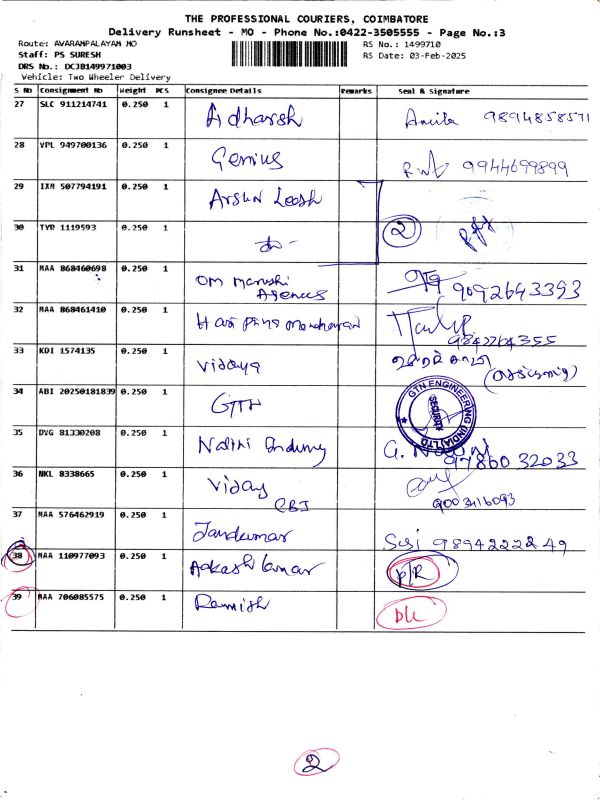 THE PROFESSIONAL COURIERS, COIMBATORE
Delivery Runsheet - MO - Phone No.:0422-3505555 - Page No.:3
Route: AVARAMPALAYAM MO
RS No.: 1499710
Staff: PS SURESH
RS Date: 03-Feb-2025
DRS No.: DCJB149971003
Vehicle: Two Wheeler Delivery
S No Consignment No Weight PCS Consignee Details Remarks Seal & Signature
27 SLC 911214741 0.250 1 Adharsh 9894858571
28 VPL 949700136 0.250 1 Genius 9944699899
29 IXM 507794191 0.250 1 Arsun Leosh
30 TYR 1119593 0.250 1 do - 2
31 MAA 868460698 0.250 1 Om Maruthi Agences 9092643393
32 MAA 868461410 0.250 1 9842264355
33 KDI 1574135 0.250 1 Vidaya
34 ABI 20250181839 0.250 1 GTN GTN ENGINEERING (INDIA) LTD SECURITY
35 DVG 81330208 0.250 1 Nalini 9786032033
36 NKL 8338665 0.250 1 Viday CBI 9003416093
37 MAA 576462919 0.250 1 9894222249
38 MAA 110977093 0.250 1 Aakash kumar P/R
39 MAA 706085575 0.250 1 Ramish D/L
2